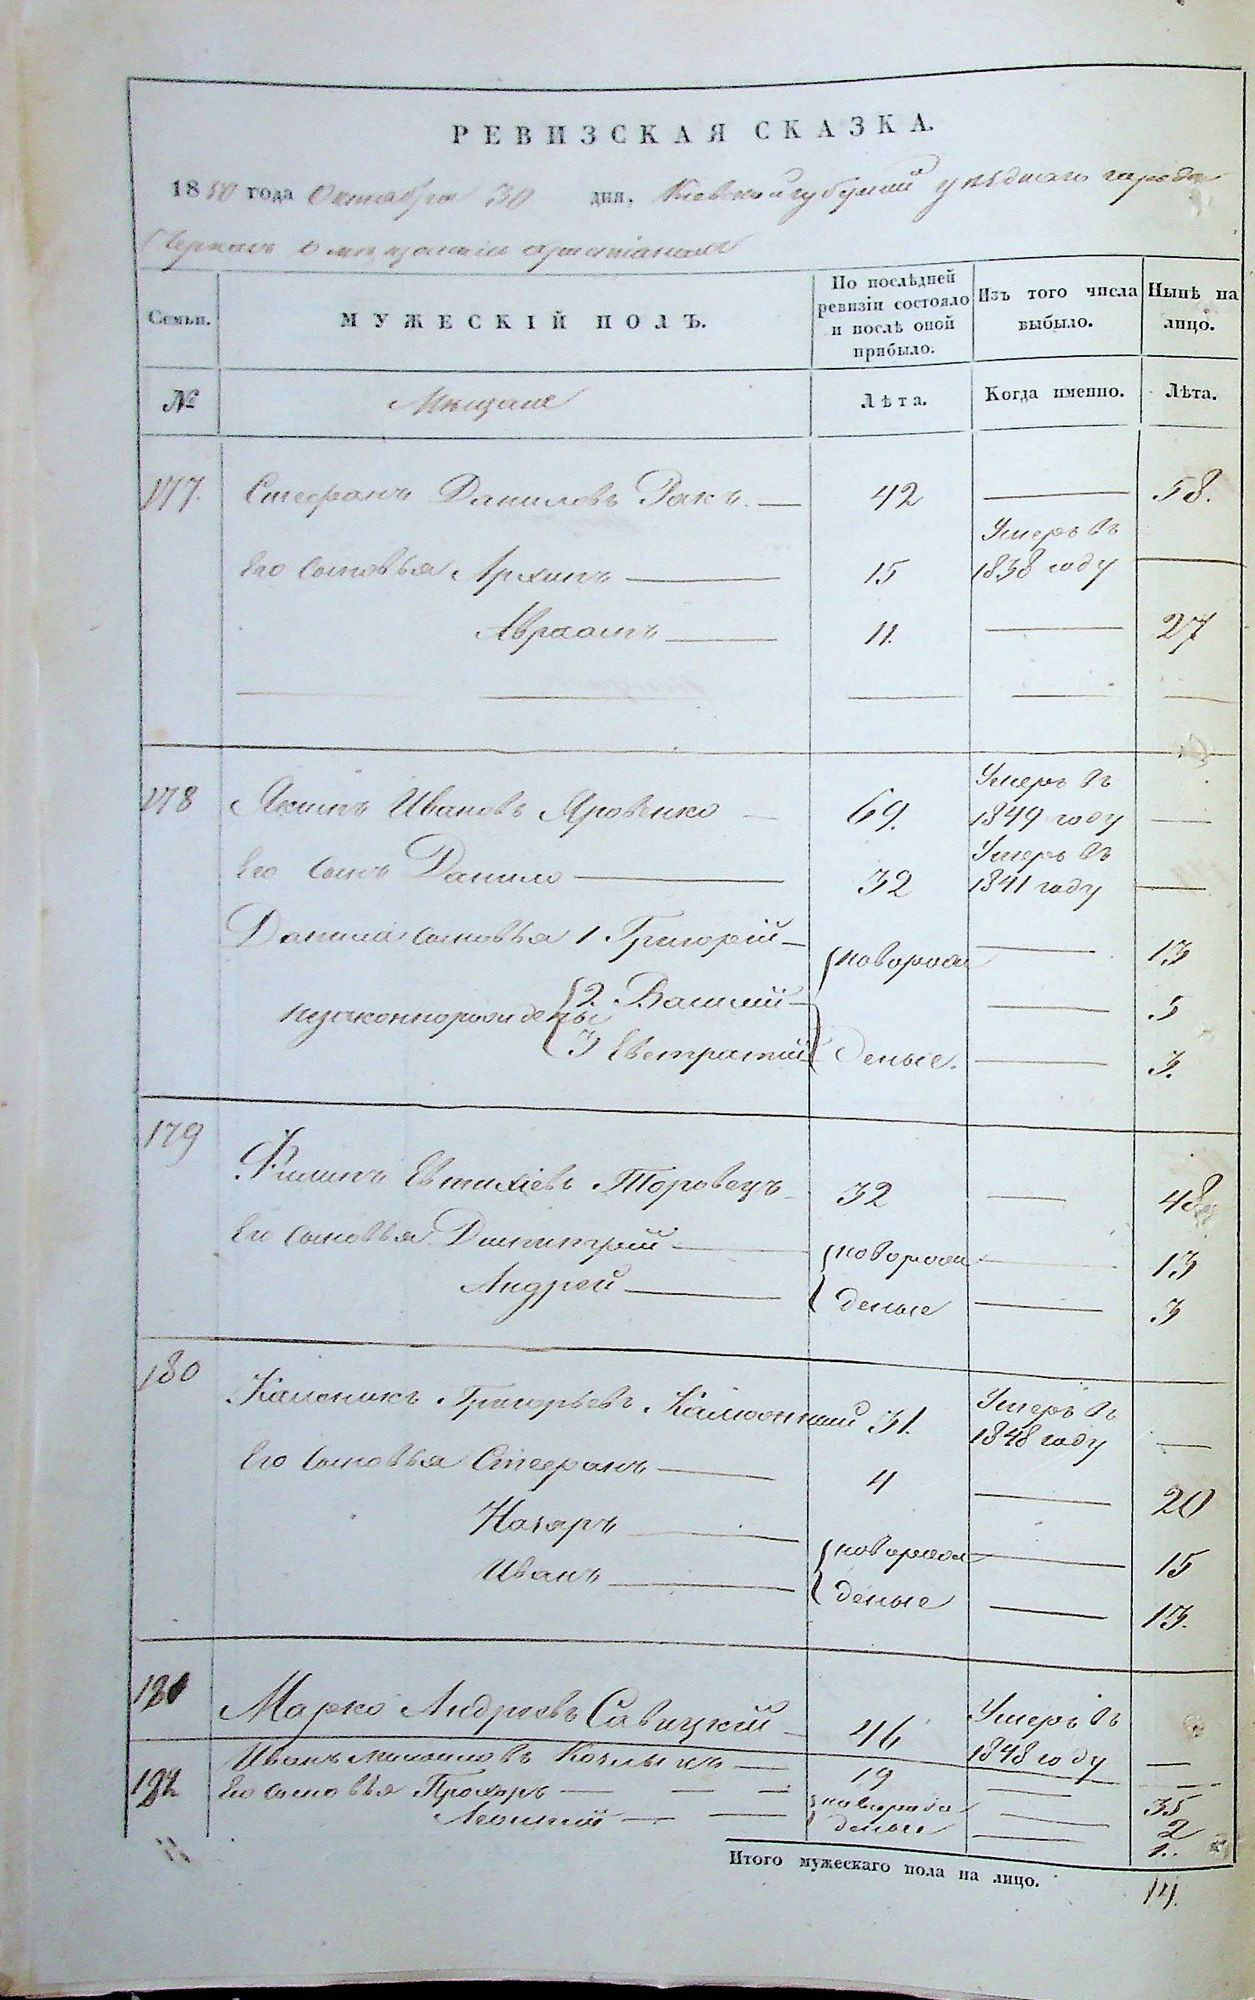 РЕВИЗСКАЯ СКАЗКА.
1850 года Октября 30 дня, Киевской губерніи уѣзднаго города
Черкасъ о мѣщанахъ христіанахъ
Семьи.
МУЖЕСКІЙ ПОЛЪ.
По послѣдней ревизіи состояло и послѣ оной прибыло.
Изъ того числа выбыло.
Нынѣ на лицо.
№ Мѣщане Лѣта. Когда именно. Лѣта.
177. Стефанъ Даниловъ Ракъ. 42 58.
Его сыновья Архипъ 15 Умеръ въ 1838 году
Авраамъ 11. 27
178 Якимъ Ивановъ Яровенко 69. Умеръ въ 1849 году
Его сынъ Данило 32 Умеръ въ 1841 году
Данила сыновья 1 Григорій новорож 13
незаконнорожденны 2. Василій 5
3 Евстратій деные. 3.
179 Филипъ Евтихіевъ Торовецъ 32 48
Его сыновья Димитрій новорож 13
Андрей деные 3
180 Каленикъ Григорьевъ 31. Умеръ въ 1848 году
Его сыновья Стефанъ 4 20
Назаръ новорож 15
Иванъ деные 13.
181 Марко Андреевъ Савицкій 46 Умеръ въ 1848 году
182 Иванъ 19 35
Его сыновья Прохоръ новорож 2
деные 1.
Итого мужескаго пола на лицо. 14.